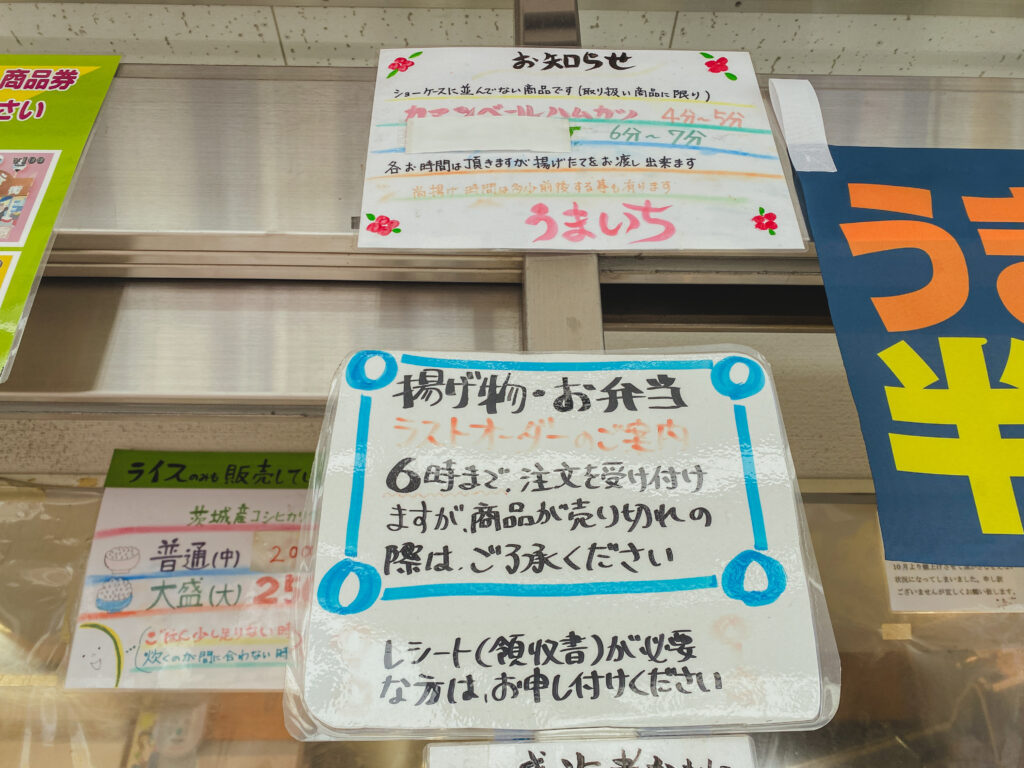 商品券
さい
お知らせ
ショーケースに並んでない商品です(取り扱い商品に限り)
カマンベールハムカツ 4分〜5分
6分〜7分
各お時間は頂きますが揚げたてをお渡し出来ます
尚揚げ時間は多少前後する事も有ります
うまいち
揚げ物・お弁当
ラストオーダーのご案内
6時まで、注文を受け付け
ますが、商品が売り切れの
際は、ご了承ください
レシート(領収書)が必要
な方は、お申し付けください
ライスのみも販売してい
茨城産コシヒカリ
普通(中) 200
大盛(大) 25
ごはん少し足りない時
炊くのが間に合わない時
う
半
10月より値上げさせて
状況になってしまいました。申し訳
ございませんが宜しくお願い致します。